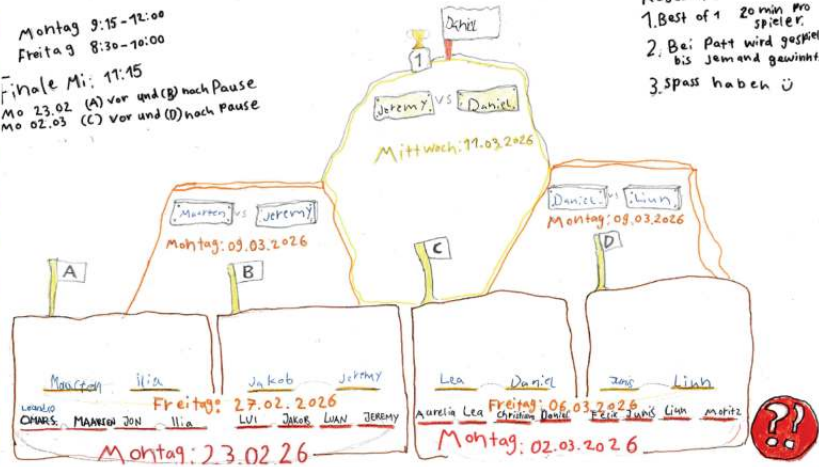 Montag 9:15-12:00
Freitag 8:30-10:00
Finale Mi: 11:15
Mo 23.02 (A) vor und (B) nach Pause
Mo 02.03 (C) vor und (D) nach Pause
1. Best of 1 20 min pro
spieler.
2. Bei Patt wird gespiel
bis jemand gewinnt.
3. spass haben ü
Daniel
1
Jeremy vs Daniel
Mittwoch: 11.03.2026
Maarten vs Jeremy
Montag: 09.03.2026
Daniel vs Liun
Montag: 09.03.2026
A
B
C
D
Maarten Ilia
Jakob Jeremy
Lea Daniel
Junis Liun
Freitag: 27.02.2026
Freitag: 06.03.2026
Leandro
OMARS. MAARTEN JON Ilia
LUI JAKOB LUAN JEREMY
Aurelia Lea Christian Daniel
Junis Liun Moritz
Montag: 23.02 26
Montag: 02.03.2026
?!